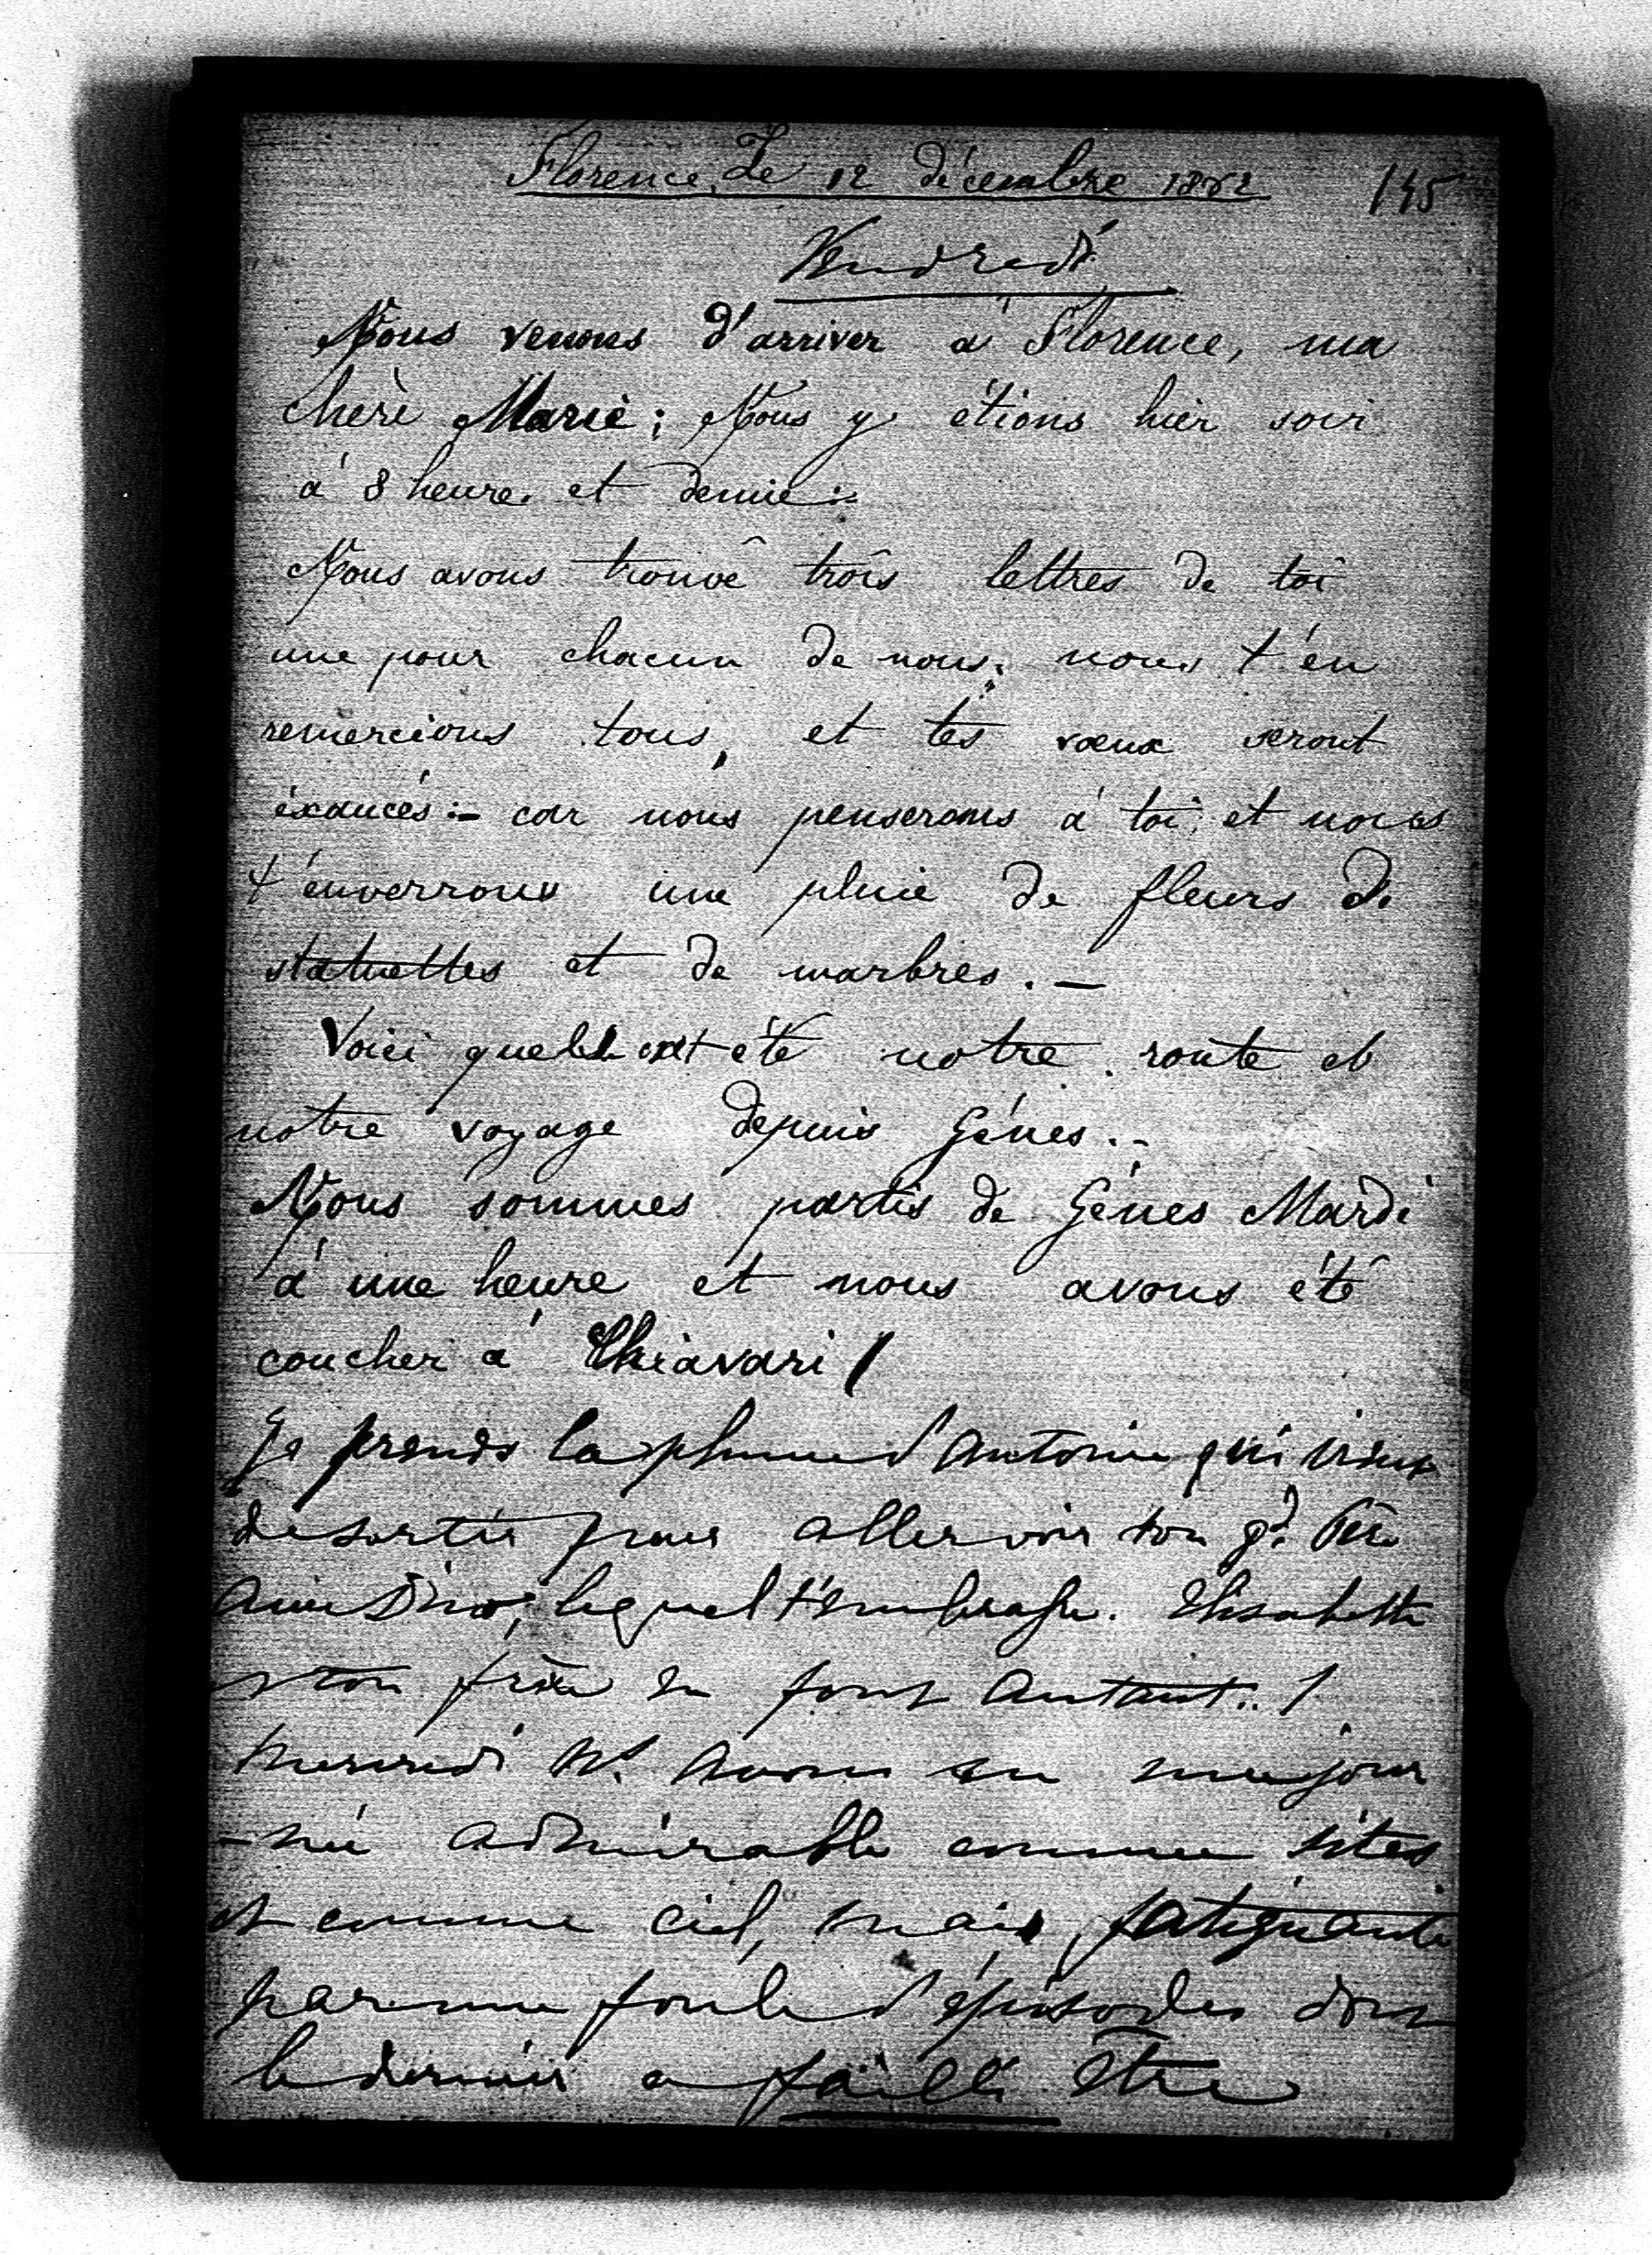 Florence, Le 12 décembre 1862
145
Vendredi
Nous venons d'arriver à Florence, ma
chère Marie; Nous y étions hier soir
à 8 heures et demie.-
Nous avons trouvé trois lettres de toi
une pour chacun de nous; nous t'en
remercions tous, et tes vœux seront
éxaucés:- car nous penserons à toi, et nous
t'enverrons une pluie de fleurs de
statuettes et de marbres.-
Voici quelle été notre route et
notre voyage depuis Gênes.-
Nous sommes partis de Gênes Mardi
à une heure et nous avons été
coucher à Chiavari/
Je prends la plume d'Antonin qui vient
de sortir pour aller voir ton gd. Père
lequel t'embrasse. Elisabeth
et ton frère en font autant../
Mercredi Ns. avons eu une jour
-née admirable comme sites
et comme ciel, mais fatiguante
par une foule d'épisodes dont
le dernier a failli être